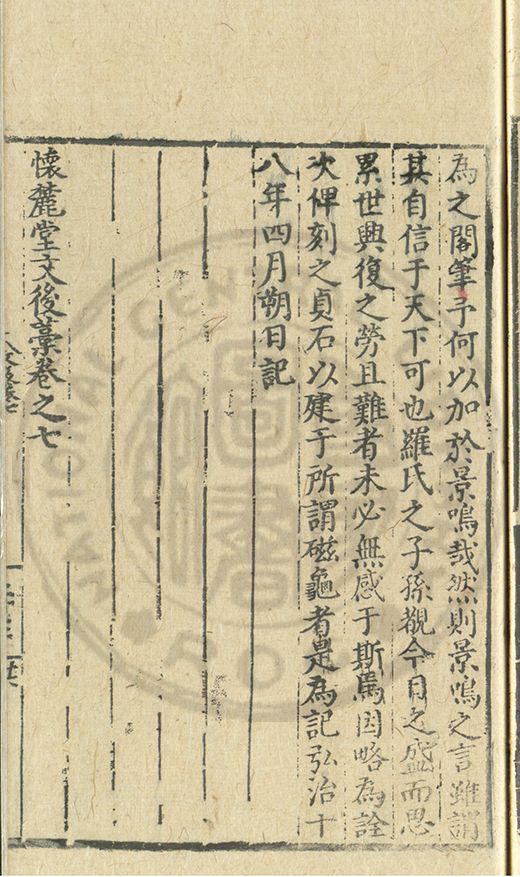 為之閣筆予何以加於景鳴哉然則景鳴之言雖謂
其自信于天下可也羅氏之子孫觀今日之盛而思
累世興復之勞且難者未必無感于斯焉因略為詮
次俾刻之貞石以建于所謂磁龜者是為記弘治十
八年四月朔日記
懷麓堂文後藁卷之七